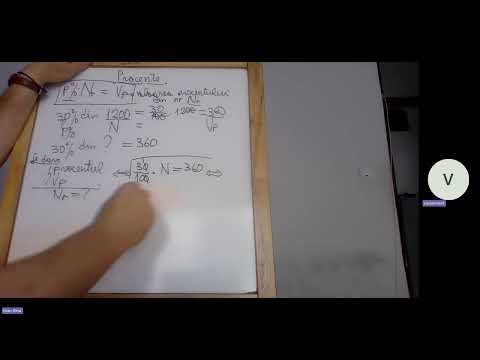 Procente
p% · Nr = Vp valoarea procentului
din nr Nr
30% din 1200 = 30/100 · 1200 = 360
p% N = Vp
30% din ? = 360
Se dau
procentul
Vp
Nr = ?
⇔ 30/100 · N = 360 ⇔
V